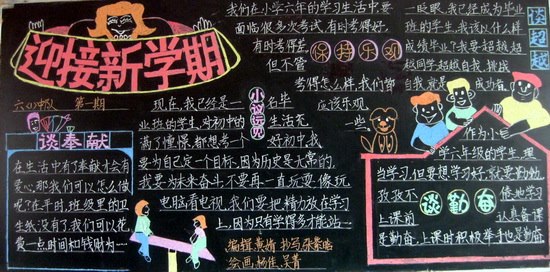 迎接新学期
六(4)中队 第一期
谈奉献
在生活中有了奉献才会有
爱心,那我们可以怎么做
呢?在平时,班级里的卫
生纸没了,我们可以花
费一点时间和钱财为----
我们在小学六年的学习生活中要
面临很多次考试,有时考得好,
有时考得差,
但不管
保持乐观
考得怎么样,我们都
应该乐观
一些。
小议玩儿
现在,我已经是一名毕
业班的学生,对初中的生活充
满了憧憬,都想考一个好初中,我
要为自己定一个目标,因为历史是无常的,
我要为未来奋斗,不要再一直玩耍,像玩
电脑看电视,我们要把精力放在学习
上,因为只有学得多才能站---
编辑:黄娇 抄写:张
绘画:杨佳、吴菁
谈超越
一眨眼,我已经成为毕业
班的学生,我该以什么样
成绩毕业?我要超越,超
越同学,超越自我,挑战
自我,就是
谈勤奋
作为小
学六年级的学生,理
也学习,但要想学习好,就要勤勉,
孜孜不
上课前
认真备课
是勤奋,上课时积极举手也是勤奋。